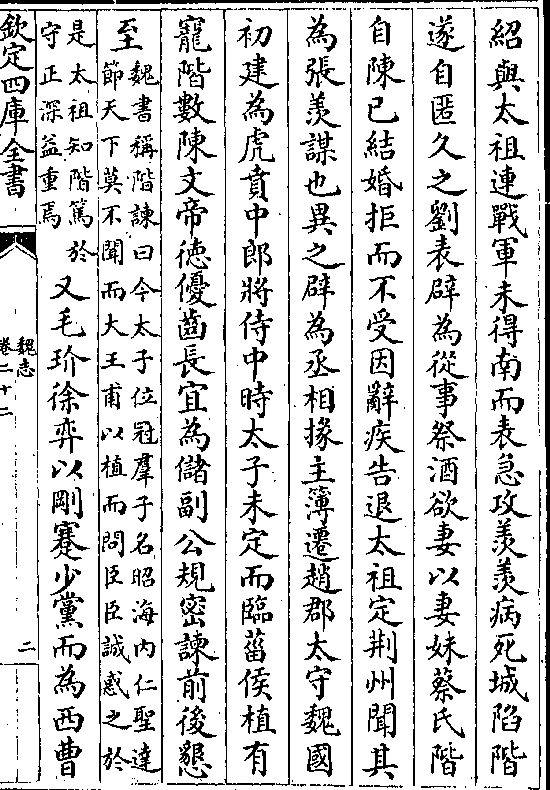 紹與太祖連戰軍未得南而表急攻羡羡病死城陷階
遂自匿久之劉表辟為從事祭酒欲妻以妻妹蔡氏階
自陳已結婚拒而不受因辭疾告退太祖定荆州聞其
為張羡謀也異之辟為丞相掾主簿遷趙郡太守魏國
初建為虎賁中郎將侍中時太子未定而臨菑侯植有
寵階數陳文帝德優齒長宜為儲副公規密諫前後懇
至
魏書稱階諫曰今太子位冠羣子名昭海内仁聖達
節天下莫不聞而大王甫以植而問臣臣誠惑之於
是太祖知階篤於
守正深益重焉
又毛玠徐弈以剛蹇少黨而為西曹
欽定四庫全書
魏志
卷二十二
二